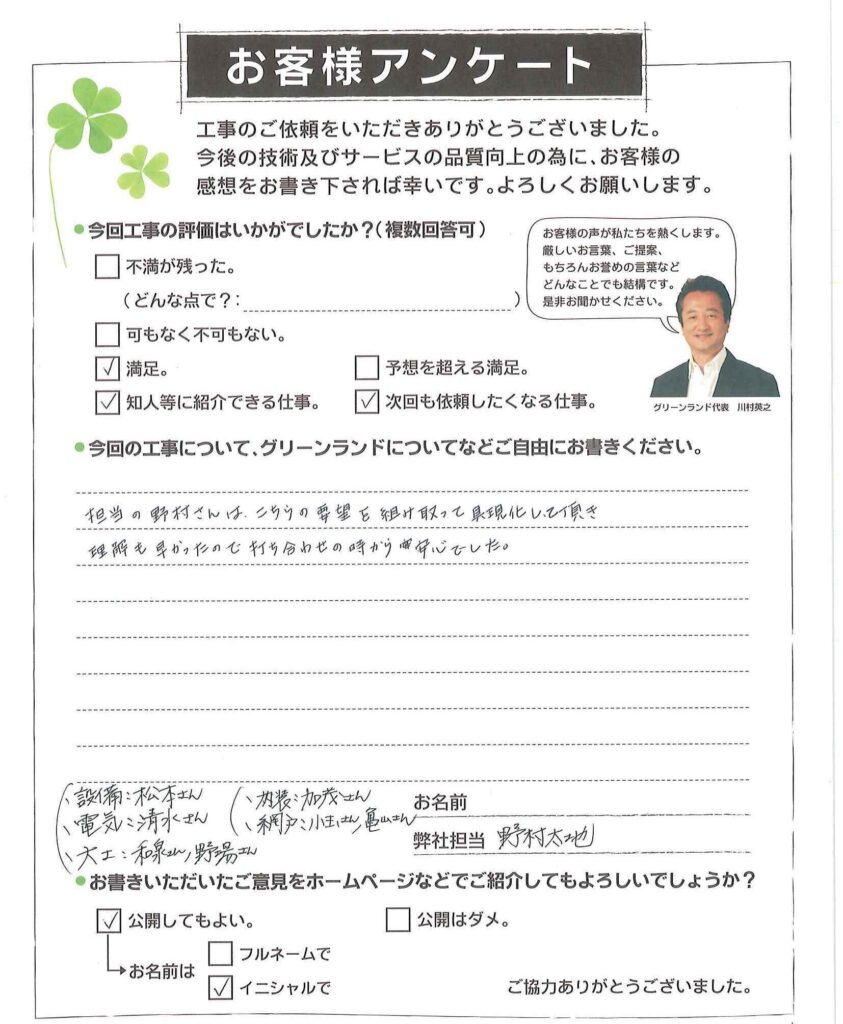 お客様アンケート
工事のご依頼をいただきありがとうございました。
今後の技術及びサービスの品質向上の為に、お客様の
感想をお書き下されば幸いです。よろしくお願いします。
今回工事の評価はいかがでしたか？（複数回答可）
不満が残った。
（どんな点で？：）
可もなく不可もない。
満足。
予想を超える満足。
知人等に紹介できる仕事。
次回も依頼したくなる仕事。
お客様の声が私たちを熱くします。
厳しいお言葉、ご提案、
もちろんお誉めの言葉など
どんなことでも結構です。
是非お聞かせください。
グリーンランド代表 川村英之
今回の工事について、グリーンランドについてなどご自由にお書きください。
担当の野村さんは、こちらの要望を組け取って具現化して頂き
理解も早かったので打ち合わせの時から安心でした。
、設備：松本さん
、電気：清水さん
、大工：和泉さん、野場さん
、内装：加茂さん
、網戸：小玉さん、亀山さん
お名前
弊社担当 野村太地
お書きいただいたご意見をホームページなどでご紹介してもよろしいでしょうか？
公開してもよい。
公開はダメ。
お名前は
フルネームで
イニシャルで
ご協力ありがとうございました。